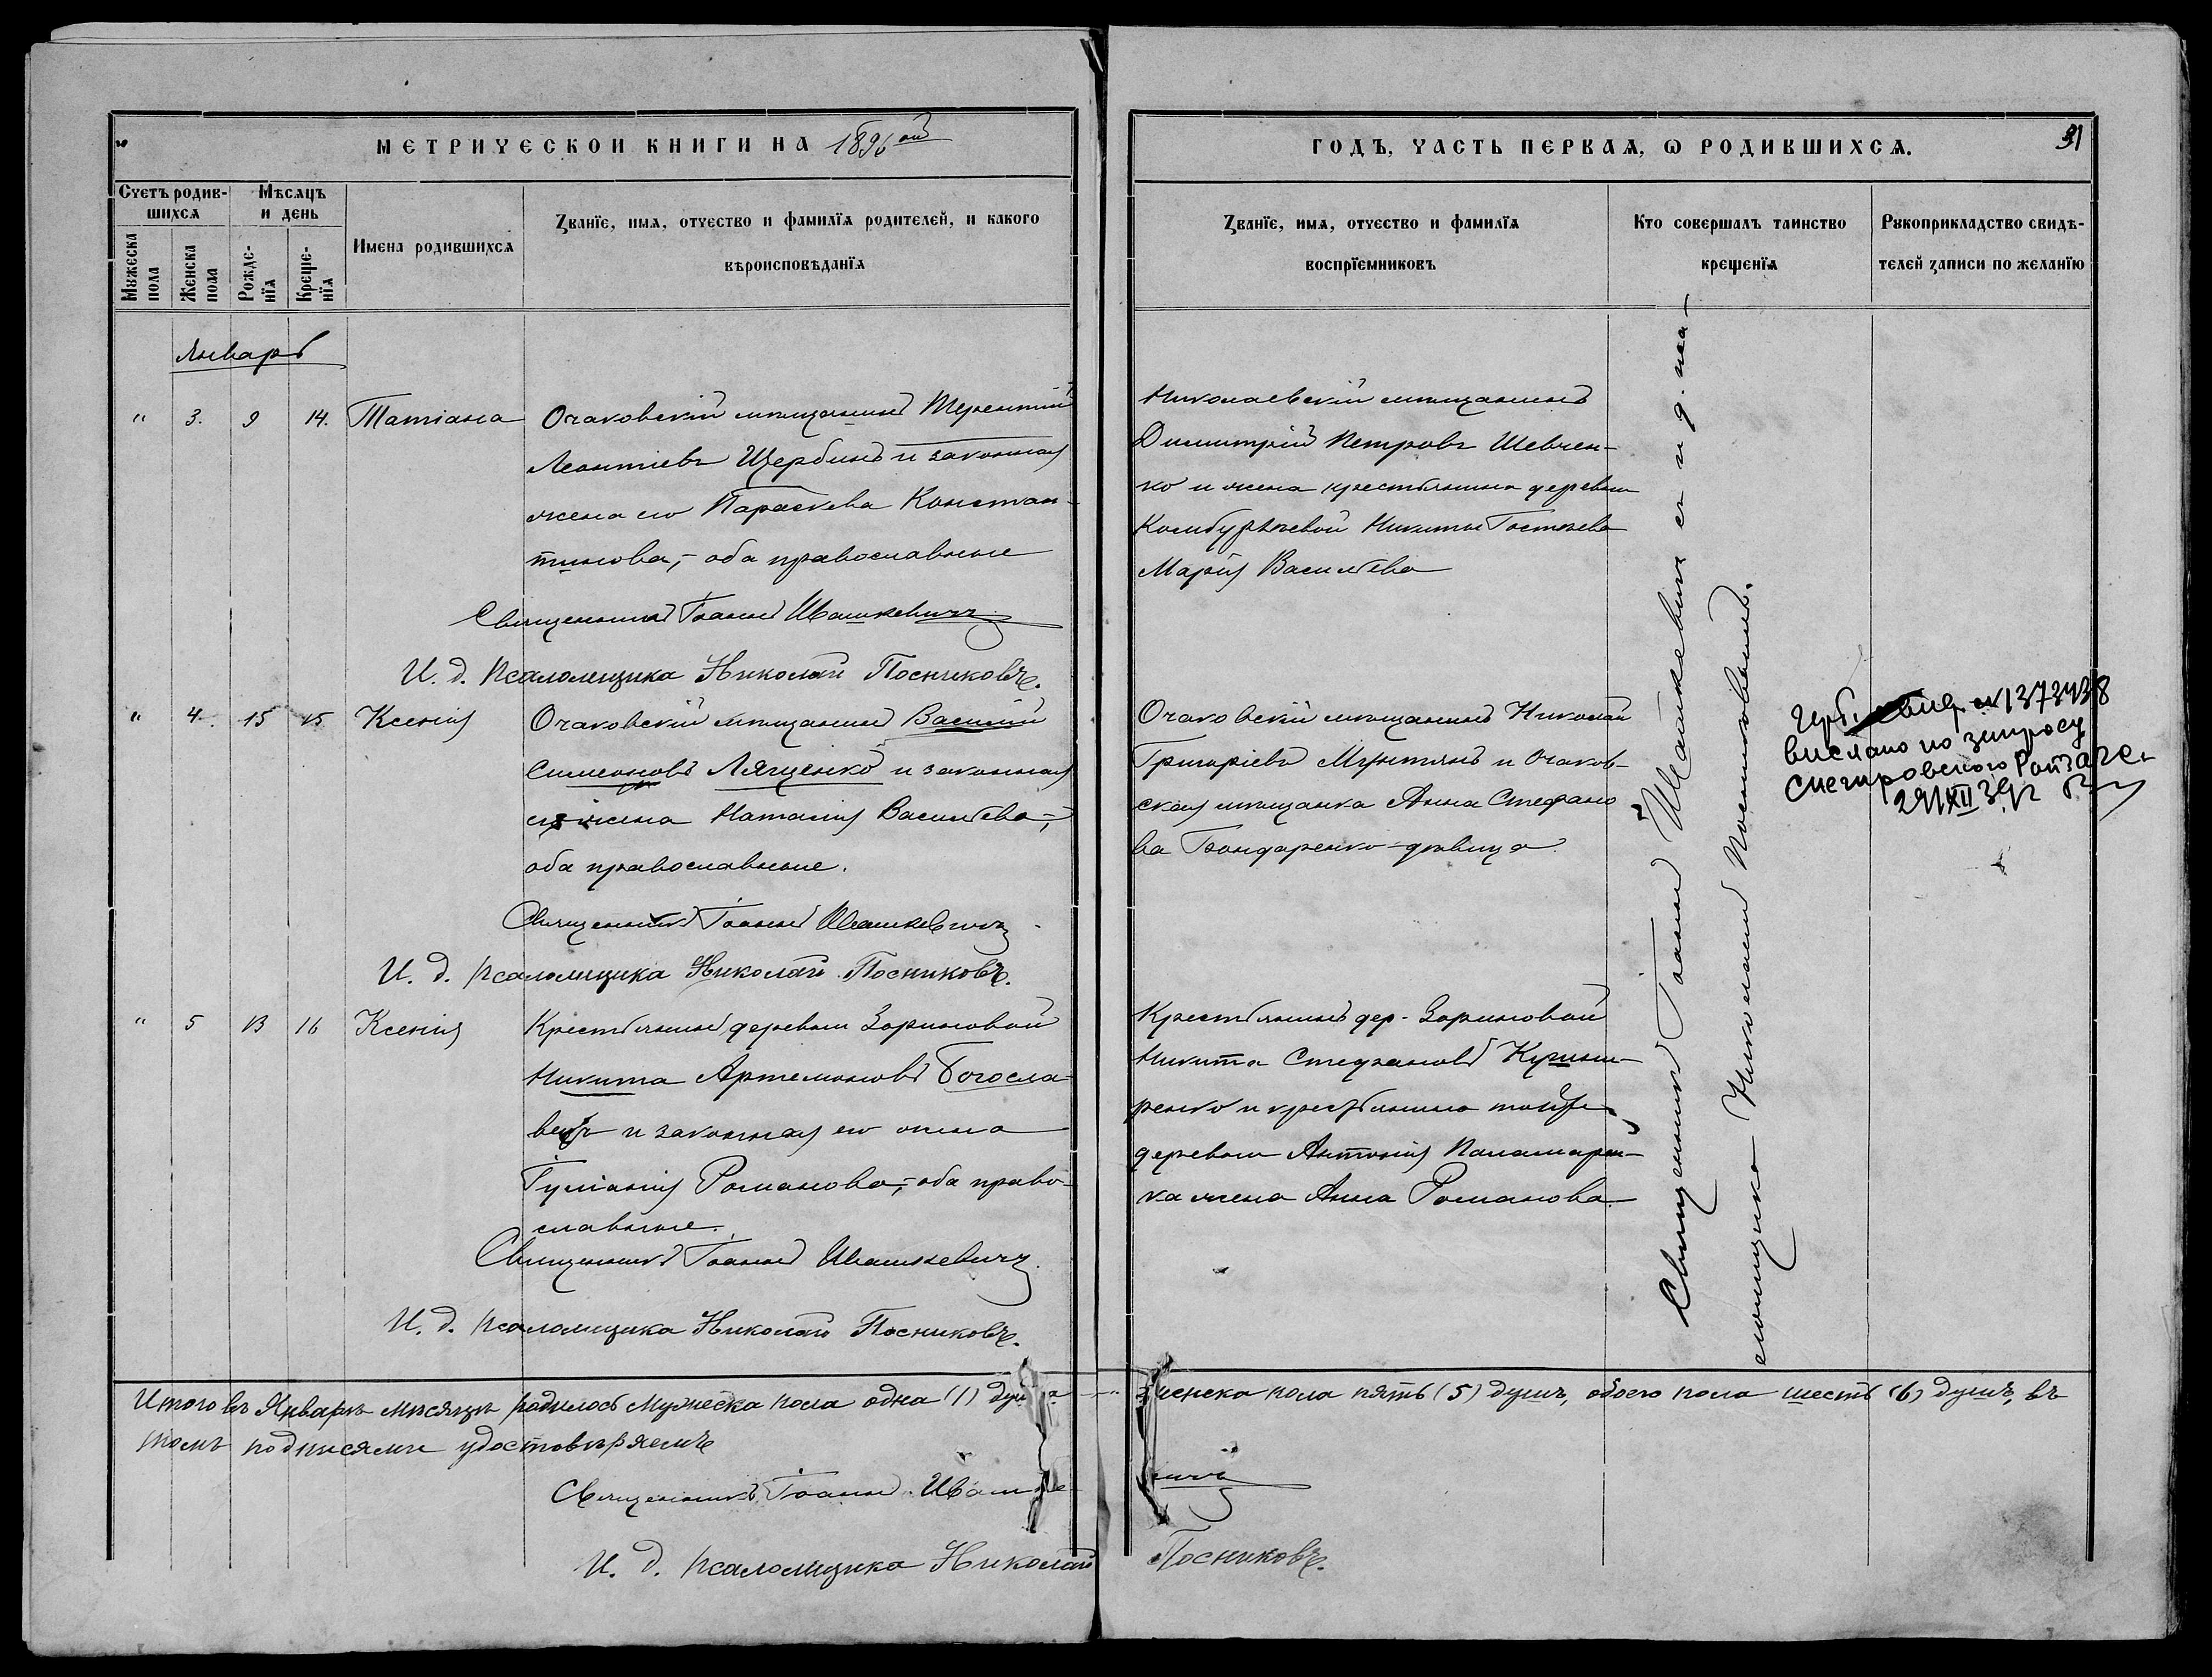 МЕТРИЧЕСКОЙ КНИГИ НА 1896ой
ГОДЪ, ЧАСТЬ ПЕРВАЯ, Ѡ РОДИВШИХСЯ.
31
Счетъ родив-
шихся
Мѣсяцъ
и день
Мужеска
пола
Женска
пола
Рожде-
нїя
Креще-
нїя
Имена родившихся
Званїе, имя, отчество и фамилїя родителей, и какого
вѣроисповѣданїя
Званїе, имя, отчество и фамилїя
воспрїемниковъ
Кто совершалъ таинство
крещенїя
Рукоприкладство свидѣ-
телей записи по желанїю
Январь
" 3. 9 14. Татіана
Очаковскій мѣщанинъ Терентій
Леонтіевъ Щербинъ и законная
жена его Параскева Констан-
тинова,- оба православные
Священникъ Іоаннъ Ивашкевичъ
И. д. псаломщика Николай Посниковъ.
Николаевскій мѣщанинъ
Димитрій Петровъ Шевчен-
ко и жена крестьянина деревни
Никиты
Марія Васильева
" 4. 15 15 Ксенія
Очаковскій мѣщанинъ Василій
Симеоновъ Лященко и законная
его жена Наталія Васильева,-
оба православные.
Священникъ Іоаннъ Ивашкевичъ
И. д. псаломщика Николай Посниковъ.
Очаковскій мѣщанинъ Николай
Григоріевъ Мунтянъ и Очаков-
ская мѣщанка Анна Стефано
ва Бондаренко-дѣвица
выслано по запросу
Снегировского РайЗАГС
29/XII 39г
" 5 13 16 Ксенія
Крестьянинъ деревни Зориновой
Никита Артемоновъ Богосла-
вецъ и законная его жена
Іуліанія Романова,- оба право-
славные.
Священникъ Іоаннъ Ивашкевичъ.
И. д. псаломщика Николай Посниковъ.
Крестьянинъ дер. Зориновой
Никита Стефановъ Кушни-
ренко и крестьянина той же
деревни Антонія Паламарчу-
ка жена Анна Романова.
Священникъ Іоаннъ Ивашкевичъ съ и д. пса-
ломщика Николаемъ Посниковымъ.
Итого въ Январѣ мѣсяцѣ родилось мужеска пола одна (1) душа женска пола пять (5) душъ, обоего пола шесть (6) душъ, въ
томъ подписями удостовѣряемъ
Священникъ Іоаннъ Ивашкевичъ
И. д. псаломщика Николай Посниковъ.